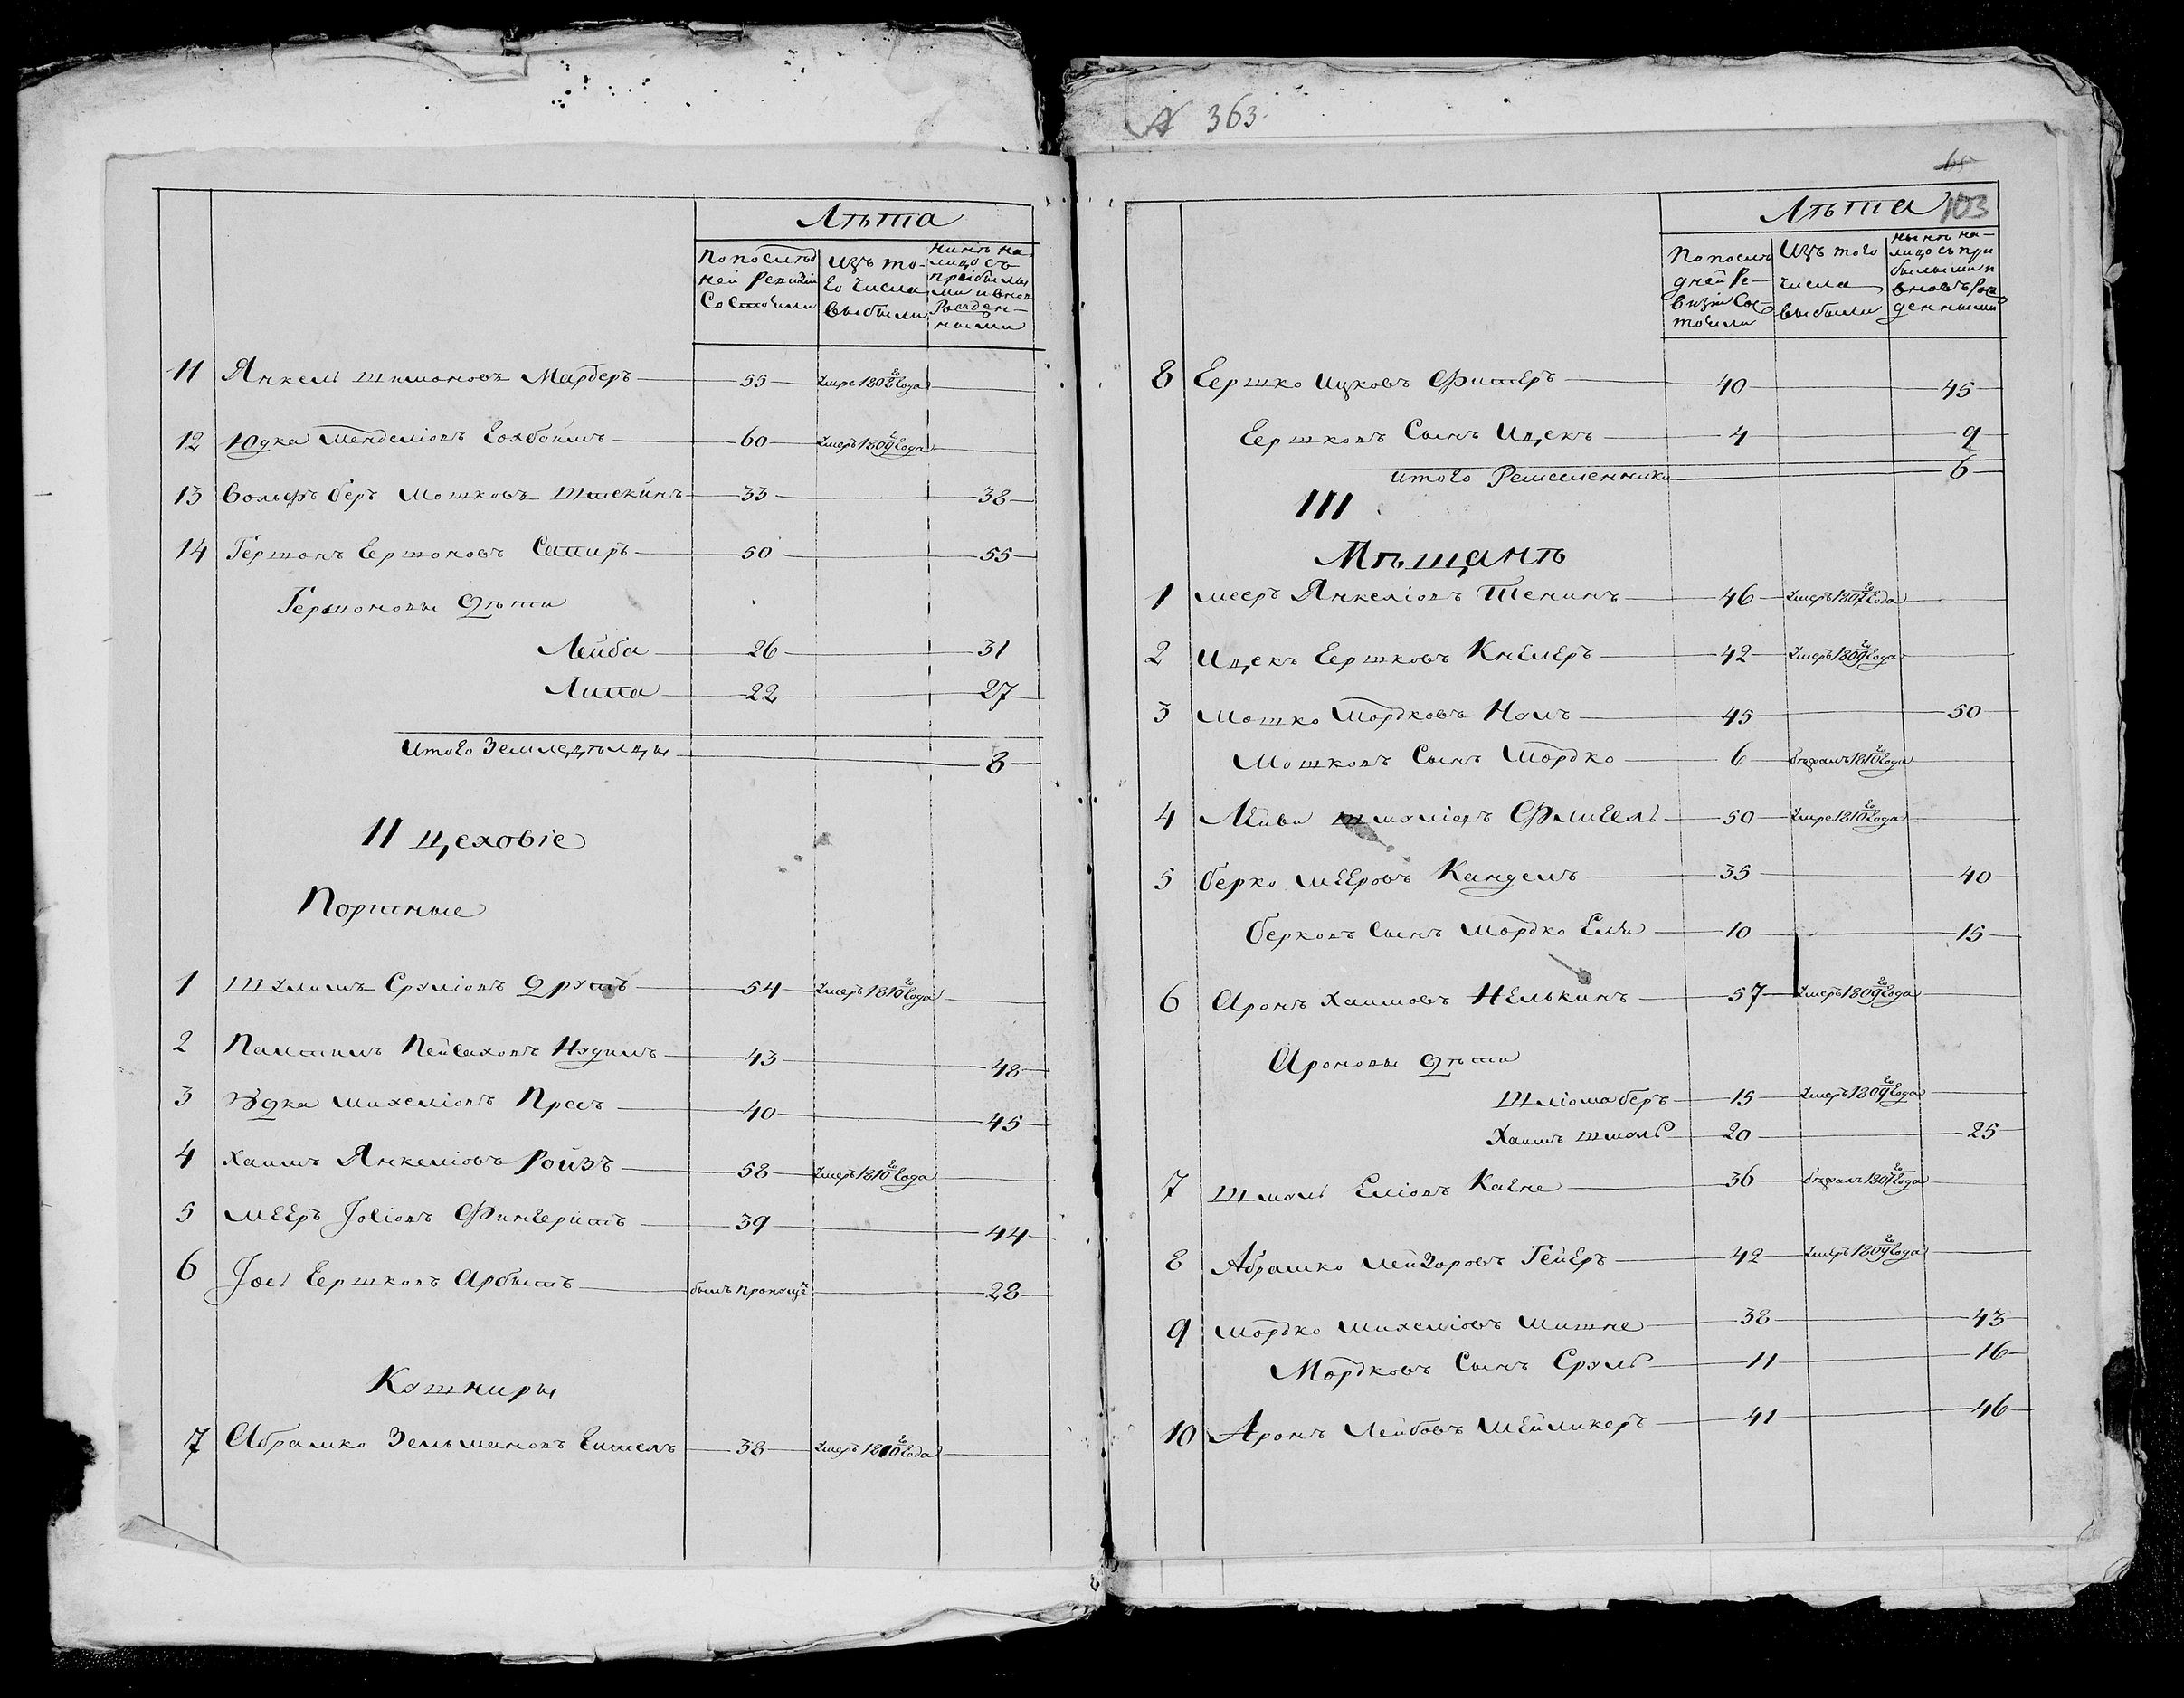 Лѣта
По послѣд
ней Ревизіи
Состоили
Изъ то-
го числа
выбыли
нинѣ на
лицо съ
прибылы
ми и внов
Рожден-
ными
11 Янкель Шимоновъ Марберъ 55 Умре 1808го года
12 Юдка Менделіовъ 60 Умеръ 1809го года
13 Вольфъ беръ Мошковъ 33 38
14 Гершонъ Гершоновъ 50 55
Гершоновы Дѣти
Лейба 26 31
Липа 22 27
Итого Земледѣлцы 8
II Цеховіе
Портные
1 Шулимъ Срулiовъ Друтъ 54 Умеръ 1810го года
2 Пейсаховъ Нудимъ 43 48
3 Юдка Михеліовъ Прес 40 45
4 Хаимъ Янкеліовъ Ройзъ 58 Умеръ 1810го года
5 Мееръ Іосіовъ Фингерутъ 39 44
6 Іось Гершковъ Арбытъ былъ пропущѣ 28
Кушниры
7 Абрамко Зельмановъ 38 Умеръ 1810го года
N 363.
103
Лѣта
По послѣ
дней Ре-
визіи Сос-
тоили
Изъ того
числа
выбыли
нынѣ на-
лицо съ при
былыми и
вновъ Рож
денными
8 Гершко Ицковъ Фишеръ 40 45
Гершковъ Сынъ Ицекъ 4 9
Итого Ремесленники 6
III
Мѣщанѣ
1 Мееръ Янкеліовъ Тенинъ 46 Умеръ 1807го года
2 Ицекъ Гершковъ Кнелеръ 42 Умеръ 1809го года
3 Мошко Мордковъ 45 50
Мошковъ Сынъ Мордко 6 бѣжалъ 1810го года
4 Лейви Шмуліовъ Флигель 50 Умре 1810го года
5 Берко Мееровъ Кандель 35 40
Берковъ Сынъ Мордко Ель 10 15
6 Аронъ Хаимовъ Нелькинъ 57 Умеръ 1809го года
Ароновы Дѣти
Шліома беръ 15 Умеръ 1809го года
Хаимъ Шмуль 20 25
7 Шмуль Еліовъ Кагне 36 бѣжалъ 1807го года
8 Абрамко Лейзоровъ Гейеръ 42 Умеръ 1809го года
9 Мордко Михеліовъ Митне 38 43
Мордковъ Сынъ Сруль 11 16
10 Аронъ Лейбовъ Мейликеръ 41 46